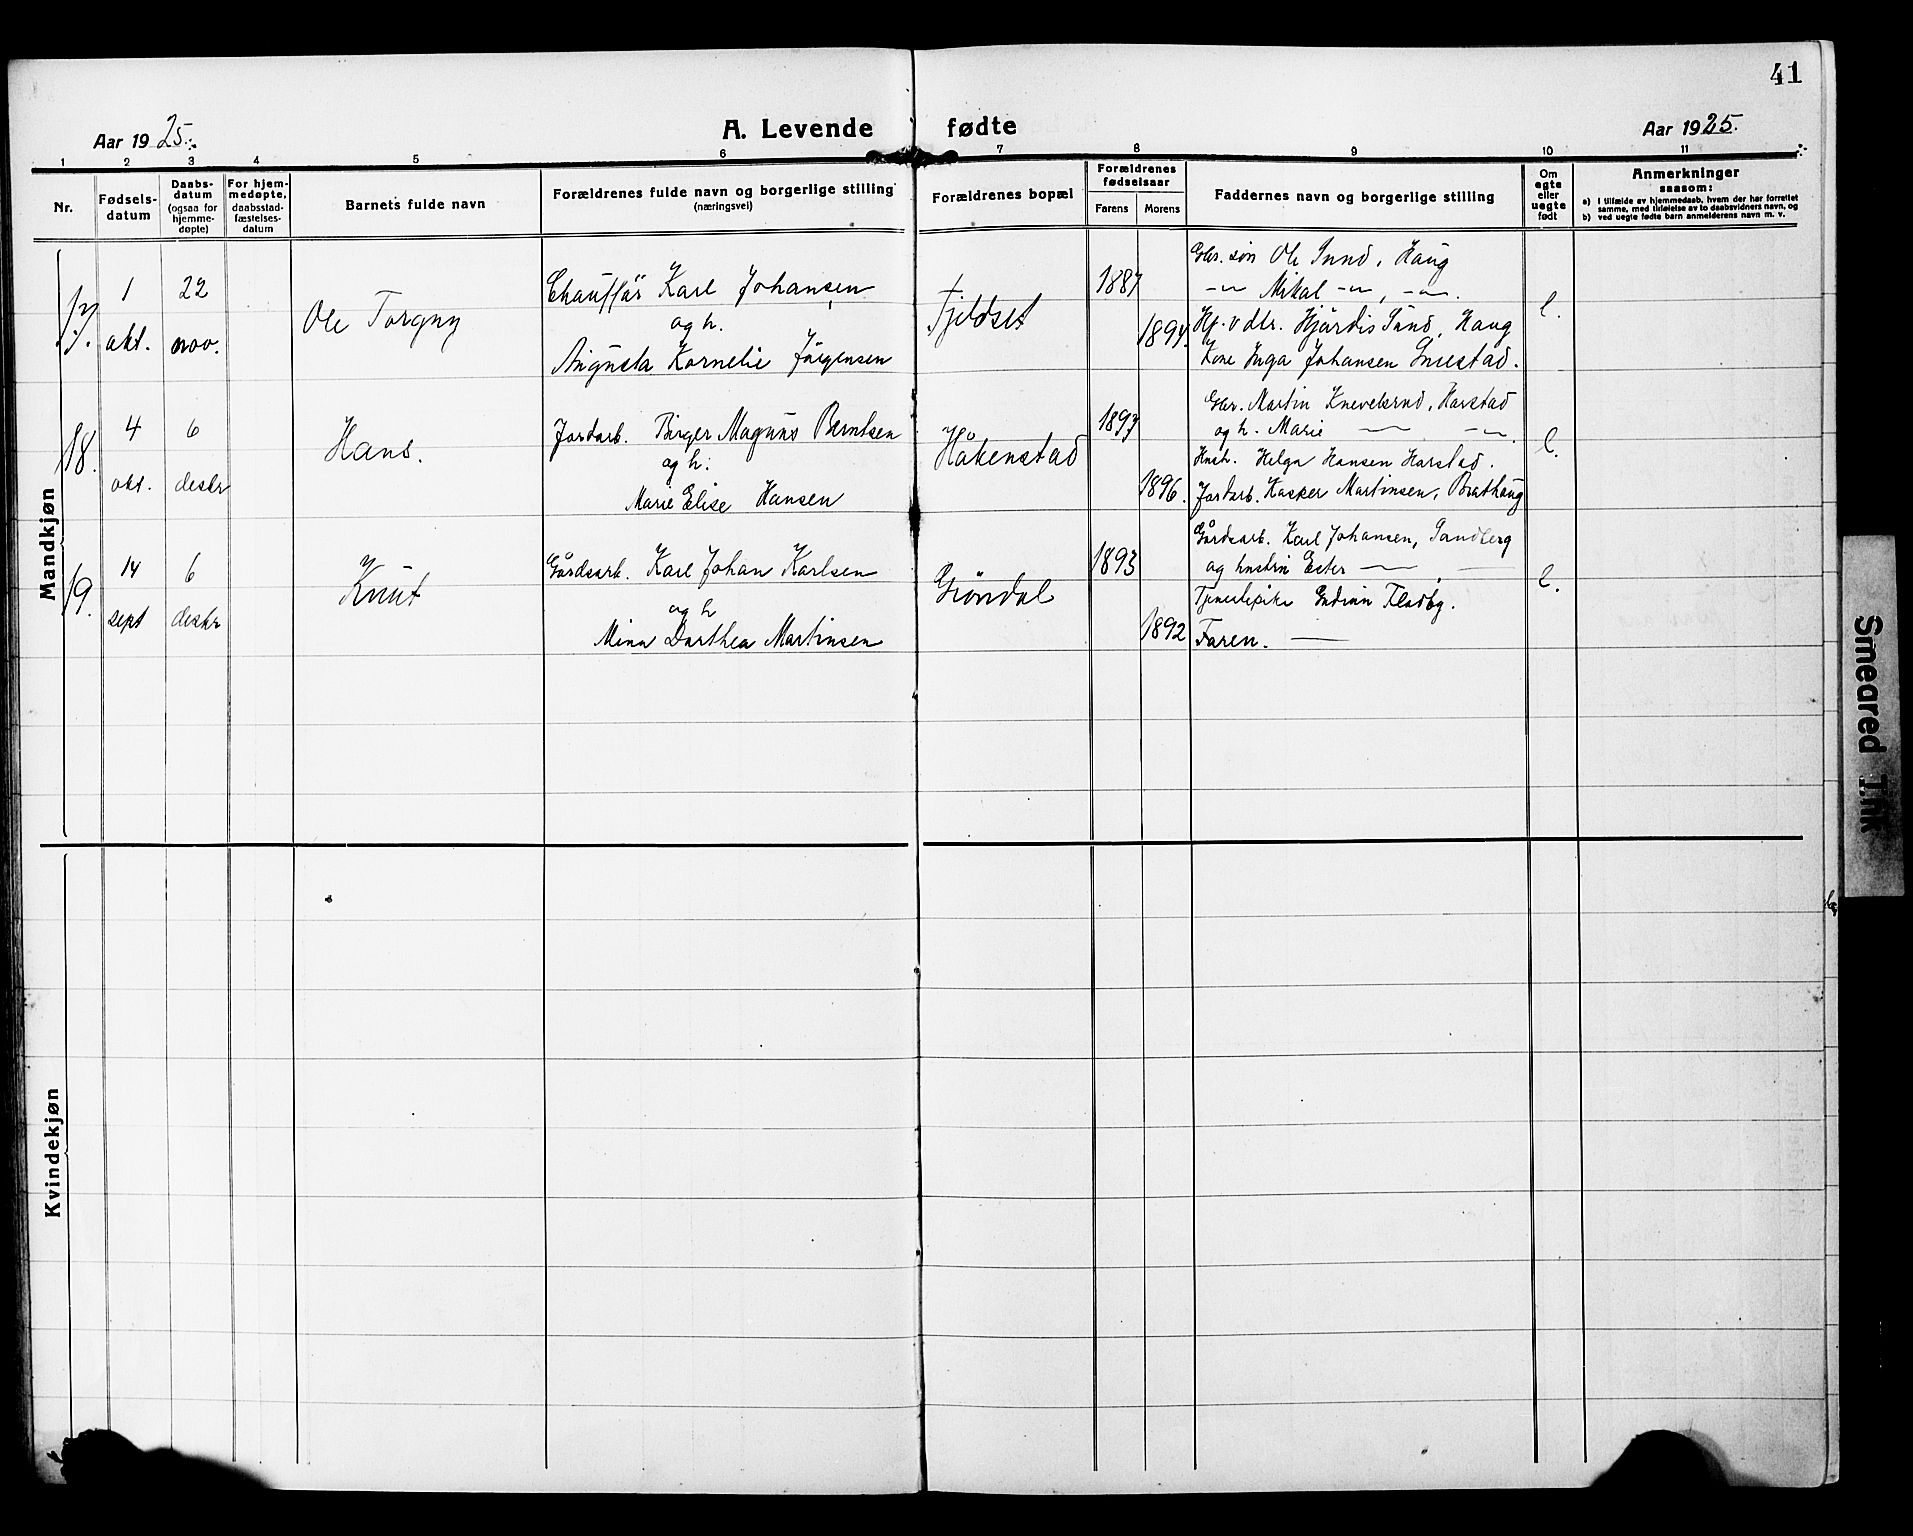 41
Aar 1925.
A. Levende fødte
Aar 1925.
1 2 3 4 5 6 7 8 9 10 11
Nr.
Fødsels-
datum
Daabs-
datum
(ogsaa for
hjemme-
døpte)
For hjem-
medøpte,
daabsstad-
fæstelses-
datum
Barnets fulde navn
Forældrenes fulde navn og borgerlige stilling
(næringsvei)
Forældrenes bopæl
Forældrenes
fødselsaar
Farens
Morens
Faddernes navn og borgerlige stilling
Om
egte
eller
uegte
født
Anmerkninger
saasom:
a) I tilfælde av hjemmedaab, hvem der har forrettet
samme, med tilføielse av to daabsvidners navn, og
b) ved uegte fødte barn anmelderens navn m. v.
Mandkjøn
17.
1
okt.
22
nov.
Ole Torgny
Chauffør Karl Johansen
og h.
Augusta Kornelie Jørgensen
Fjeldset
1887
1894.
Gbr. søn Ole Sund, Haug
-"- Mikal -"-, -"-.
Hjørdis Sund, Haug
Kone Inga Johansen
e.
18.
4
okt.
6
desbr
Hans.
Jordarb. Birger Magnus Berntsen
og h.
Marie Elise Hansen
Håkenstad
1893
1896.
Gbr. Martin Knevelsrud, Harstad
og h. Marie — -"-.
Hush. Helga Hansen Harstad.
Jordarb. Kasper Martinsen, Brathaug
e.
19.
14
sept
6
desbr
Knut
Gårdsarb. Karl Johan Karlsen
og h
Mina Dorthea Martinsen
Grøndal
1893
1892
Gårdsarb. Karl Johansen, Sandberg
og hustru Ester — —
Tjenestepike Gudrun Fladby.
Faren. —
e.
Kvindekjøn
Smeared Ink